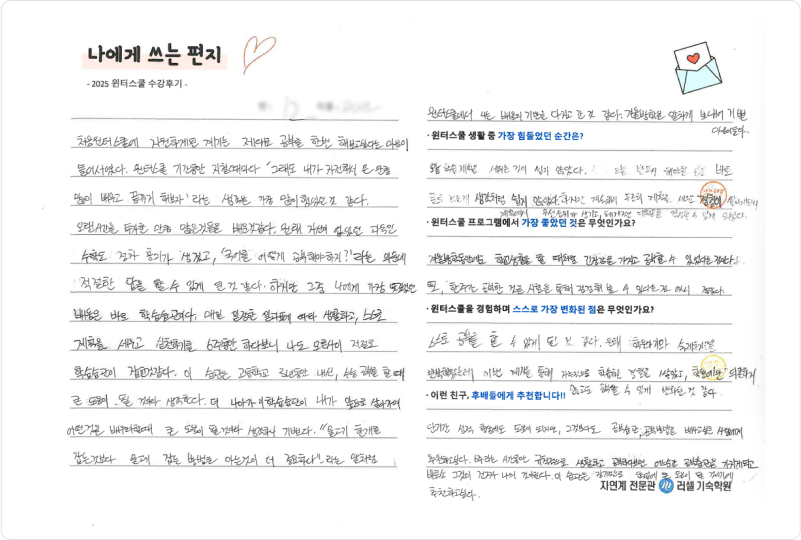 나에게 쓰는 편지
- 2025 윈터스쿨 수강후기 -
처음 윈터스쿨에 지원하게 된 계기는 제대로 공부를 한번 해보고싶다는 마음이
들어서였다. 윈터스쿨 기간동안 지칠때마다 '그래도 내가 자진해서 온 만큼
많이 배우고 끝까지 해보자' 라는 생각을 가장 많이 했었던 것 같다.
오랜시간을 투자한 만큼 많은것들을 배운것같다. 원래 자신이 없었던 과목인
수학도 점차 흥미가 생겼고, '국어를 어떻게 공부해야하지?' 라는 의문에
적절한 답을 할 수 있게 된 것 같다. 하지만 그중 나에게 가장
배움은 바로 학습습관이다. 매일 일정한 일과표에 따라 생활하고, 스스로
계획을 세우고 실천하기를 6주동안 하다보니 나도 모르사이 저절로
학습습관이 잡힌것같다. 이 습관은 고등학교 3년동안 내신, 수능 공부를 할 때
큰 도움이 될 것이라 생각한다. 더 나아가 이 학습습관이 내가 앞으로 살아가며
어떤것을 배우려할때 큰 도움이 될 것이라 생각해서 기쁘다. "물고기 한 마리를
잡는것보다 물고기 잡는 방법을 아는것이 더 중요하다" 라는 말처럼
윈터스쿨에서 나는 배움의 기반을 다지고 간 것 같다. 겨울방학을 알차게 보내어 기쁠
따름이다.
· 윈터스쿨 생활 중 가장 힘들었던 순간은?
오늘 학습 계획을 세우는 게 쉽지 않았다.
생각처럼 쉽지 않았다. 하지만 계속해서 꾸준히 계획을 세우고
계획에서 우선순위가 생기고, 체계적인 계획을 할 수 있게 되었다.
· 윈터스쿨 프로그램에서 가장 좋았던 것은 무엇인가요?
겨울방학동안에도 학교생활을 할 때처럼 긴장감을 가지고 공부할 수 있었다는 점이다.
또, 한주간 공부한 것을 시험을 통해 점검해 볼 수 있다는 점도 좋았다.
· 윈터스쿨을 경험하며 스스로 가장 변화된 점은 무엇인가요?
스스로 공부를 할 수 있게 된 것 같다. 원래 학원가와 숙제하기를
반복했었는데 이번 계기를 통해 자기주도적으로 학습하는 경험을 쌓았고, 학원에만 의존하지
않고도 공부할 수 있게 변화된 것 같다.
· 이런 친구, 후배들에게 추천합니다!!
단기간 성적 향상에도 도움이 되지만, 그것보다도 공부습관, 공부방법을 배우고싶은 사람에게
추천하고싶다. 6주라는 시간동안 규칙적으로 생활하고 공부하다보면 어느새 공부습관을 가지게되고
추천하고싶다.
자연계 전문관 러셀 기숙학원